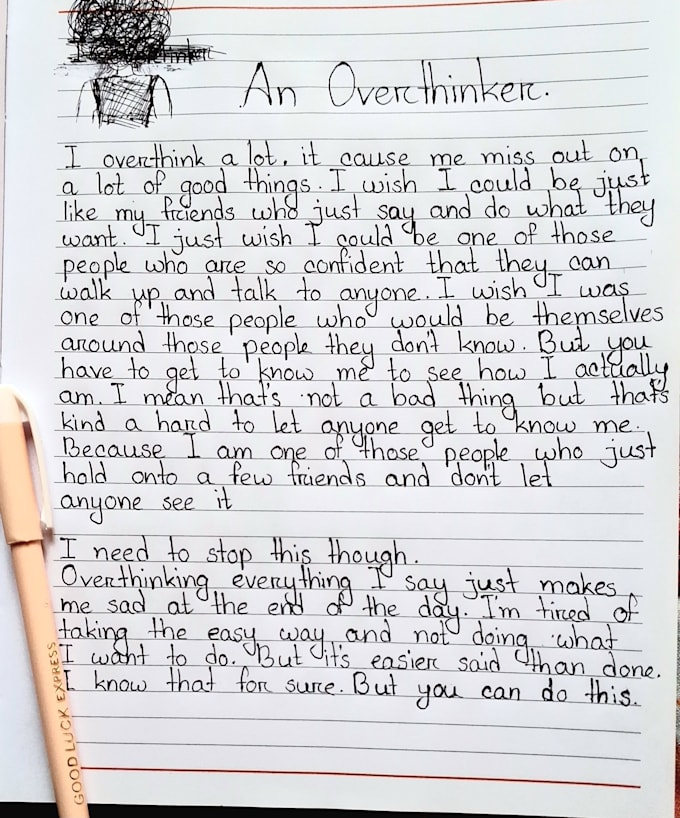 An Overthinker.
I overthink a lot. it cause me miss out on
a lot of good things. I wish I could be just
like my friends who just say and do what they
want. I just wish I could be one of those
people who are so confident that they can
walk up and talk to anyone. I wish I was
one of those people who would be themselves
around those people they don't know. But you
have to get to know me to see how I actually
am. I mean that's not a bad thing but that's
kind a hard to let anyone get to know me.
Because I am one of those people who just
hold onto a few friends and don't let
anyone see it
I need to stop this though.
Overthinking everything I say just makes
me sad at the end of the day. I'm tired of
taking the easy way and not doing what
I want to do. But it's easier said than done.
I know that for sure. But you can do this.
GOOD LUCK EXPRESS